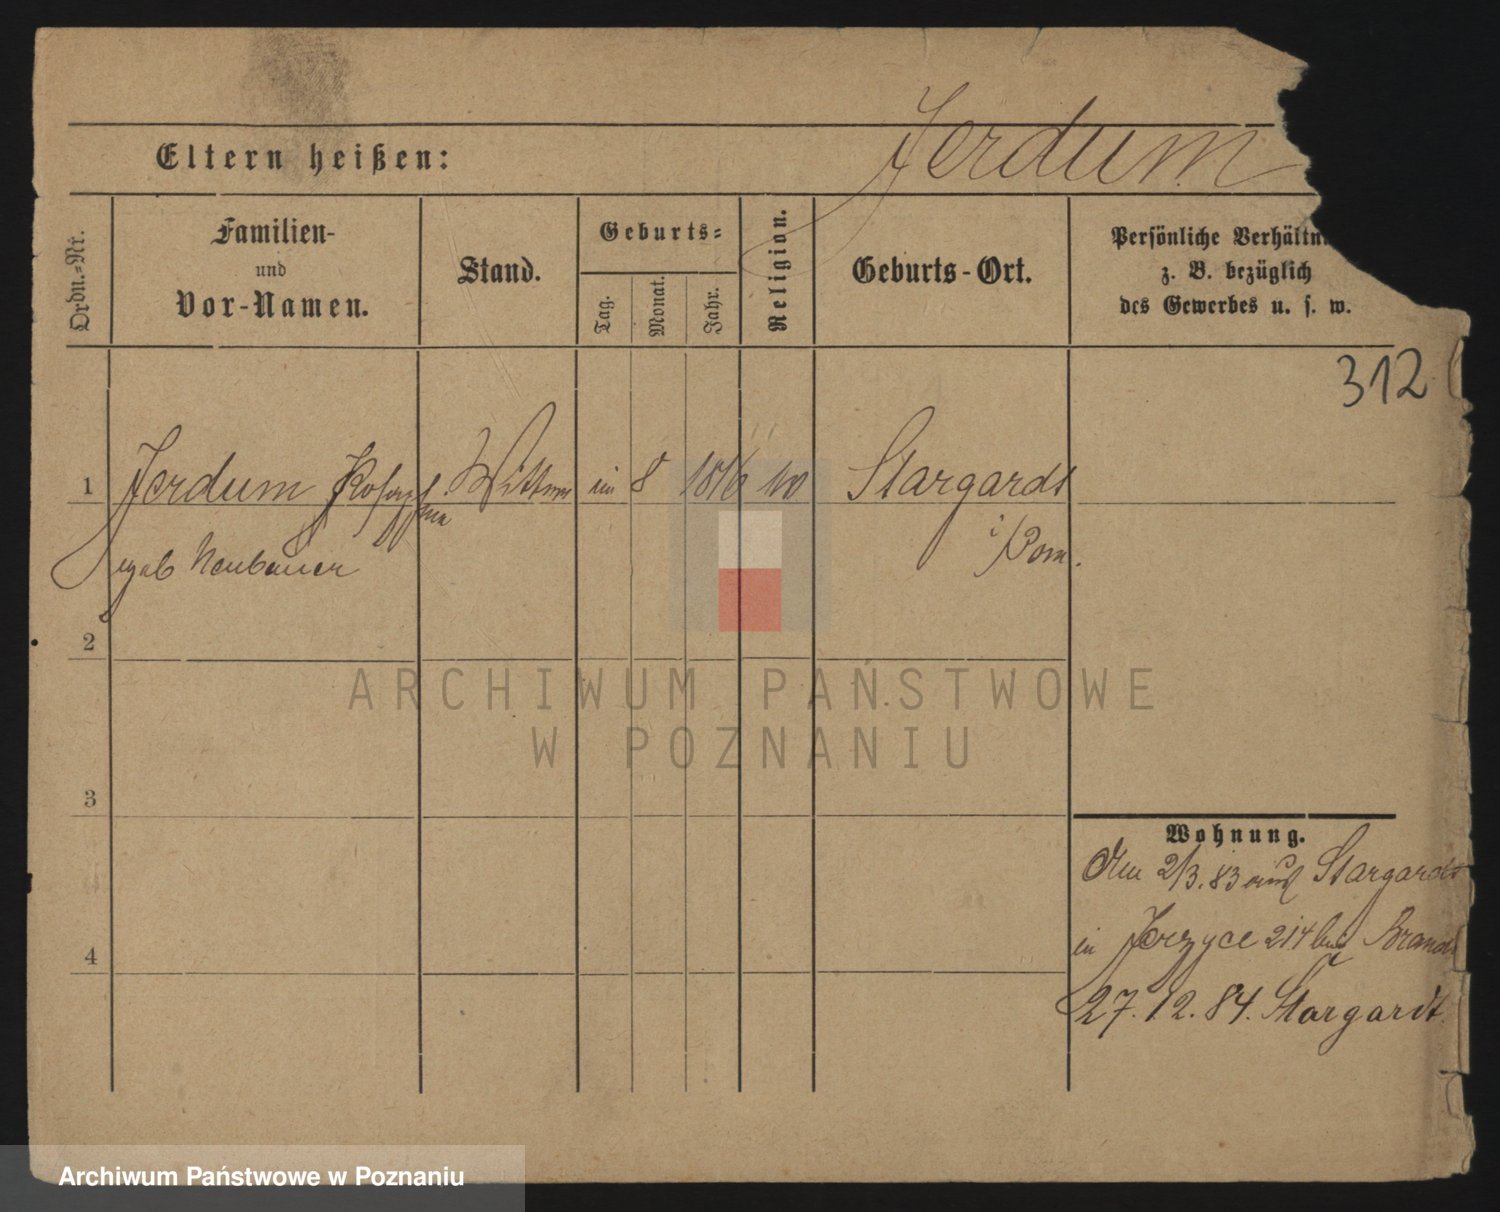 Jerdum
Eltern heißen:
Ordn.-Nr.
Familien-
und
Vor-Namen.
Stand.
Geburts-
Tag.
Monat.
Jahr.
Religion.
Geburts-Ort.
Persönliche Verhältn
z. B. bezüglich
des Gewerbes u. s. w.
312
1 Jerdum Wittwe 8 1816 Stargardt
geb Neubauer
i/Pom.
2
3
4
Wohnung.
Am 2/3.83 aus Stargardt
in Jerzyce 214 bei Brandt
27.12.84. Stargardt
ARCHIWUM PAŃSTWOWE
W POZNANIU
Archiwum Państwowe w Poznaniu